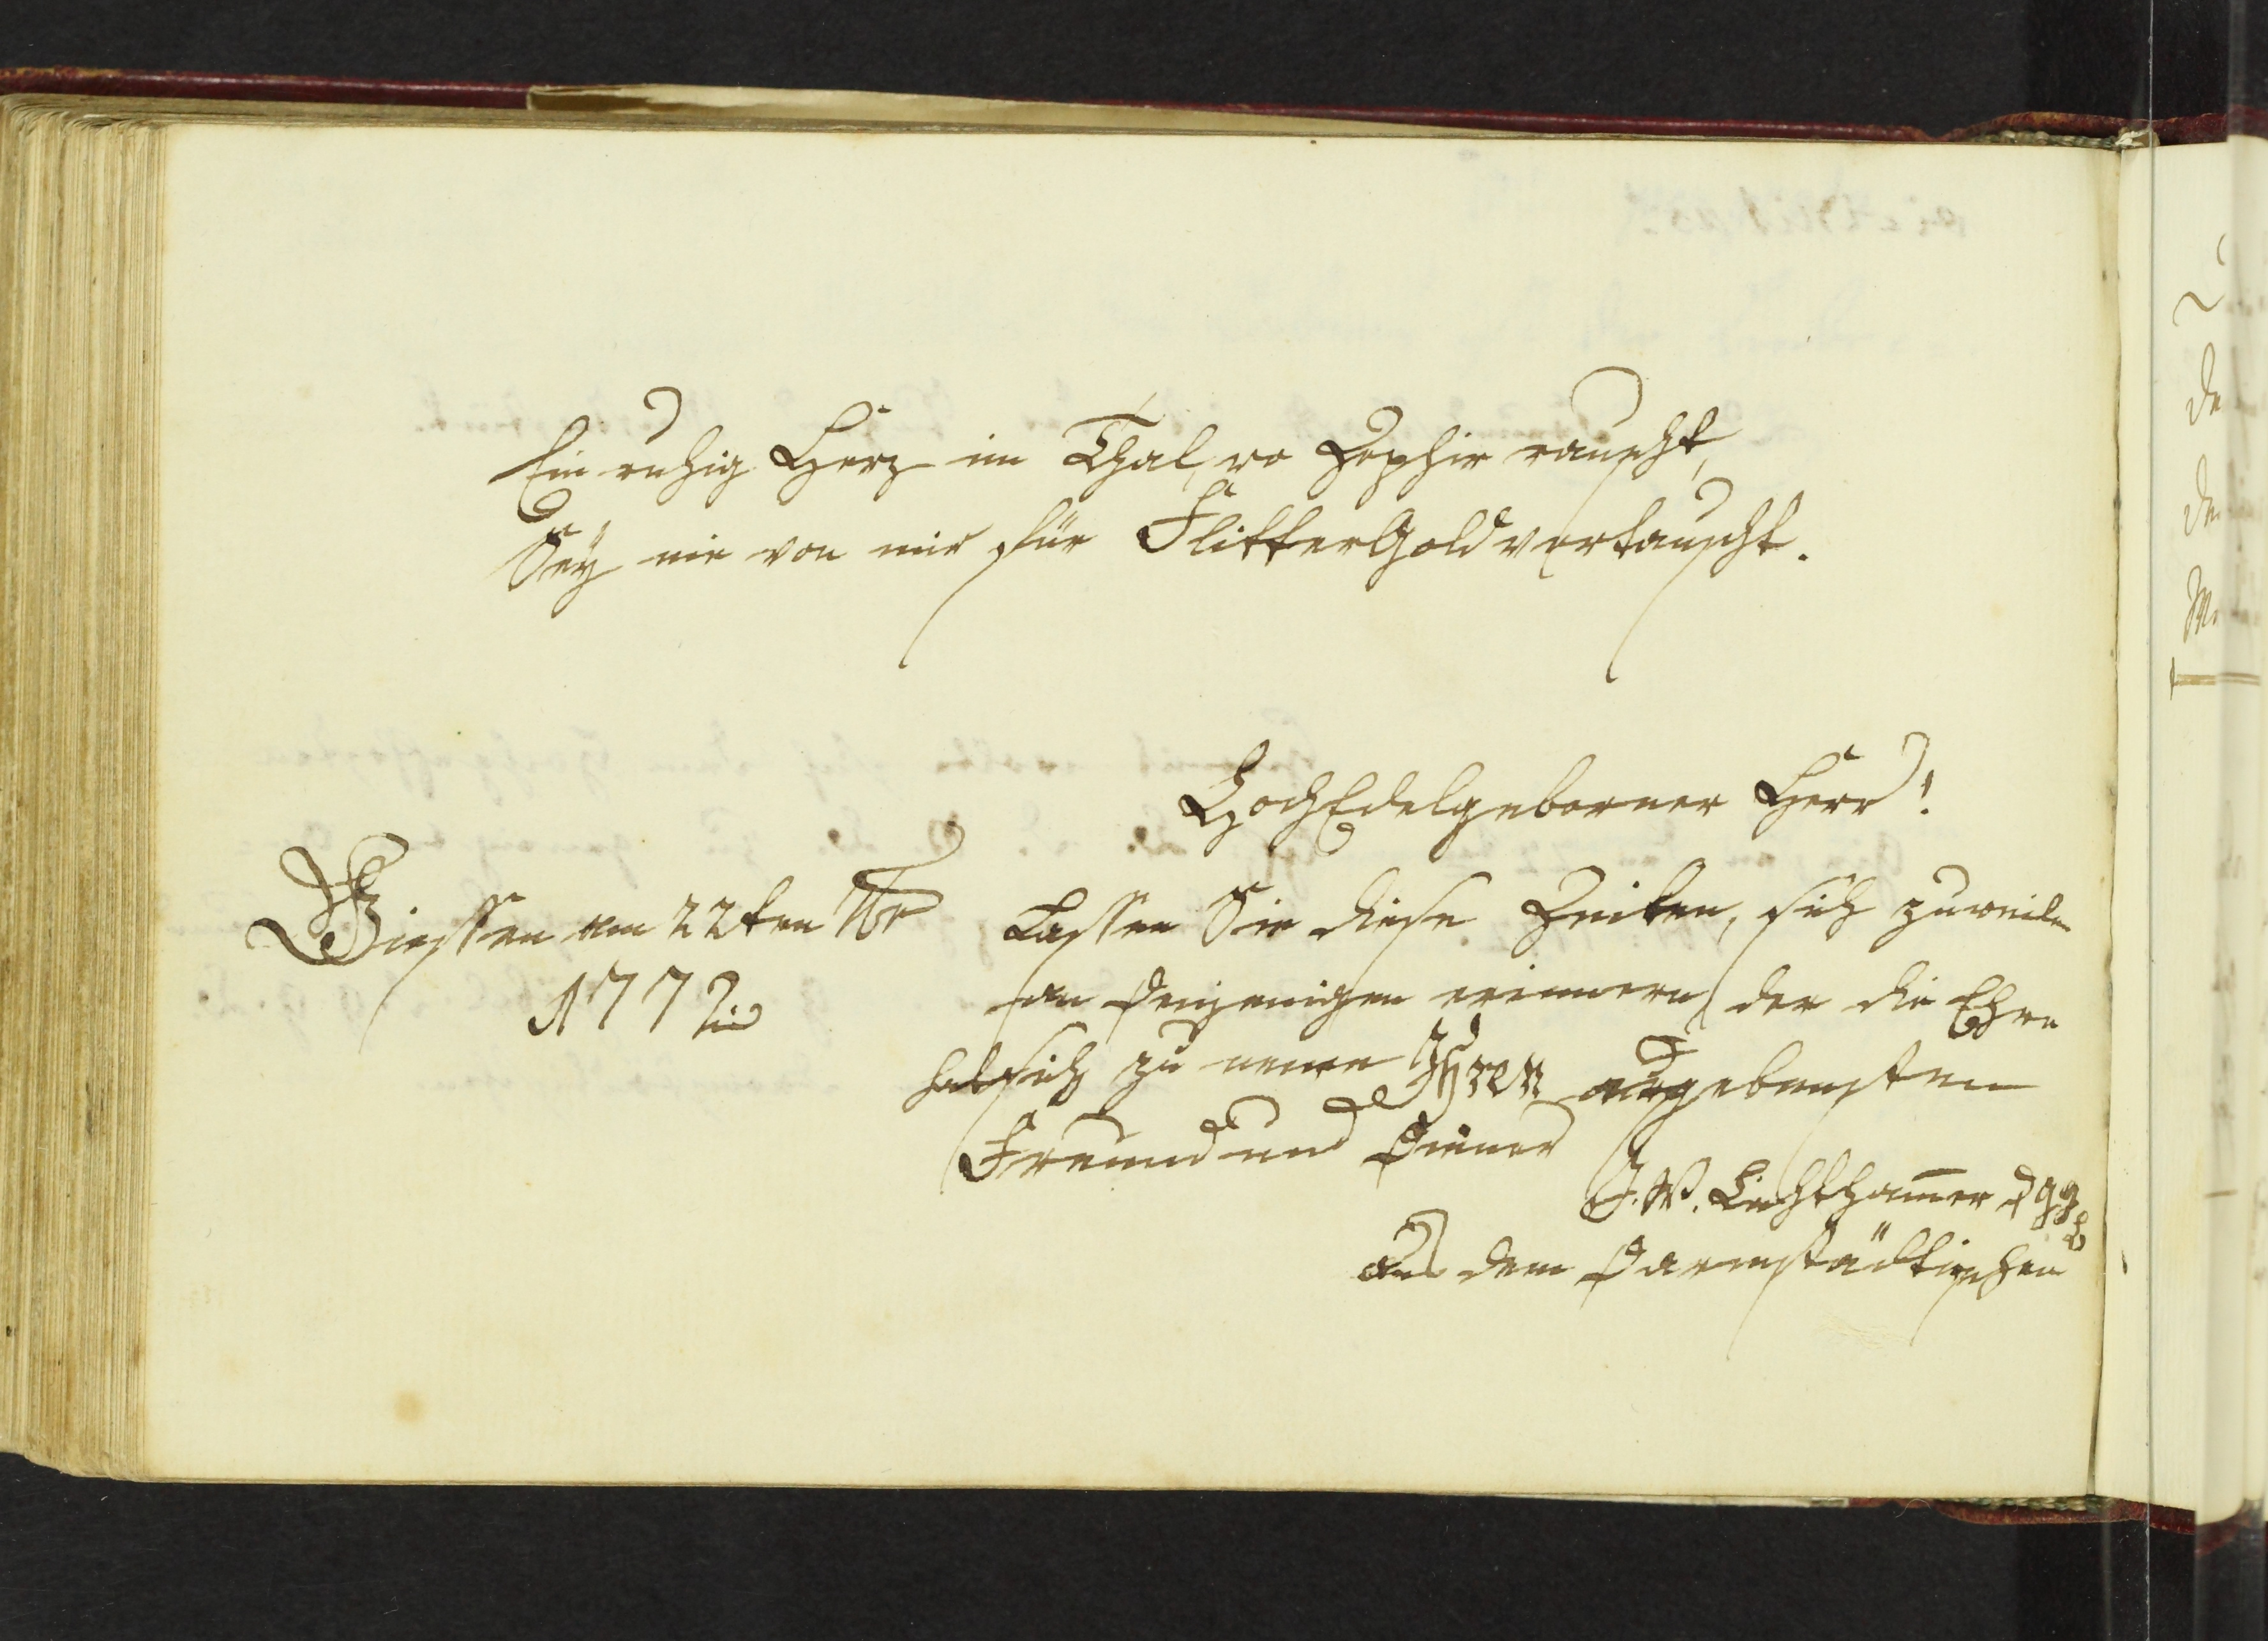 Ein ruhig Herz im Thal, wo Zephir rauscht,
Sey nie von mir für FlitterGold vertauscht.
HochEdelgeborner Herr!
Giessen am 22ten
1772
Lassen Sie diese Zeilen, sich zuweilen
an denjenigen erinnern, der die Ehre
hat sich zu nennen Ihren ergebensten
Freund und Diener
J. W. Lichthamer
aus dem Darmstädtischen